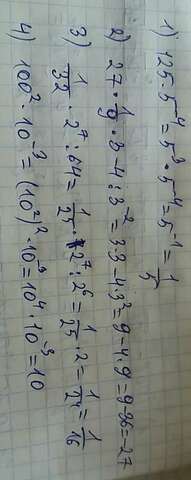 1) 125·5⁻⁴=5³·5⁻⁴=5⁻¹=1/5
2) 27·1/9·3-4:3⁻²=3·3-4·3²=9-4·9=9-36=-27
3) 1/32·2⁷:64=1/2⁵·2⁷:2⁶=1/2⁵·2=1/2⁴=1/16
4) 100²·10⁻³=(10²)²·10⁻³=10⁴·10⁻³=10